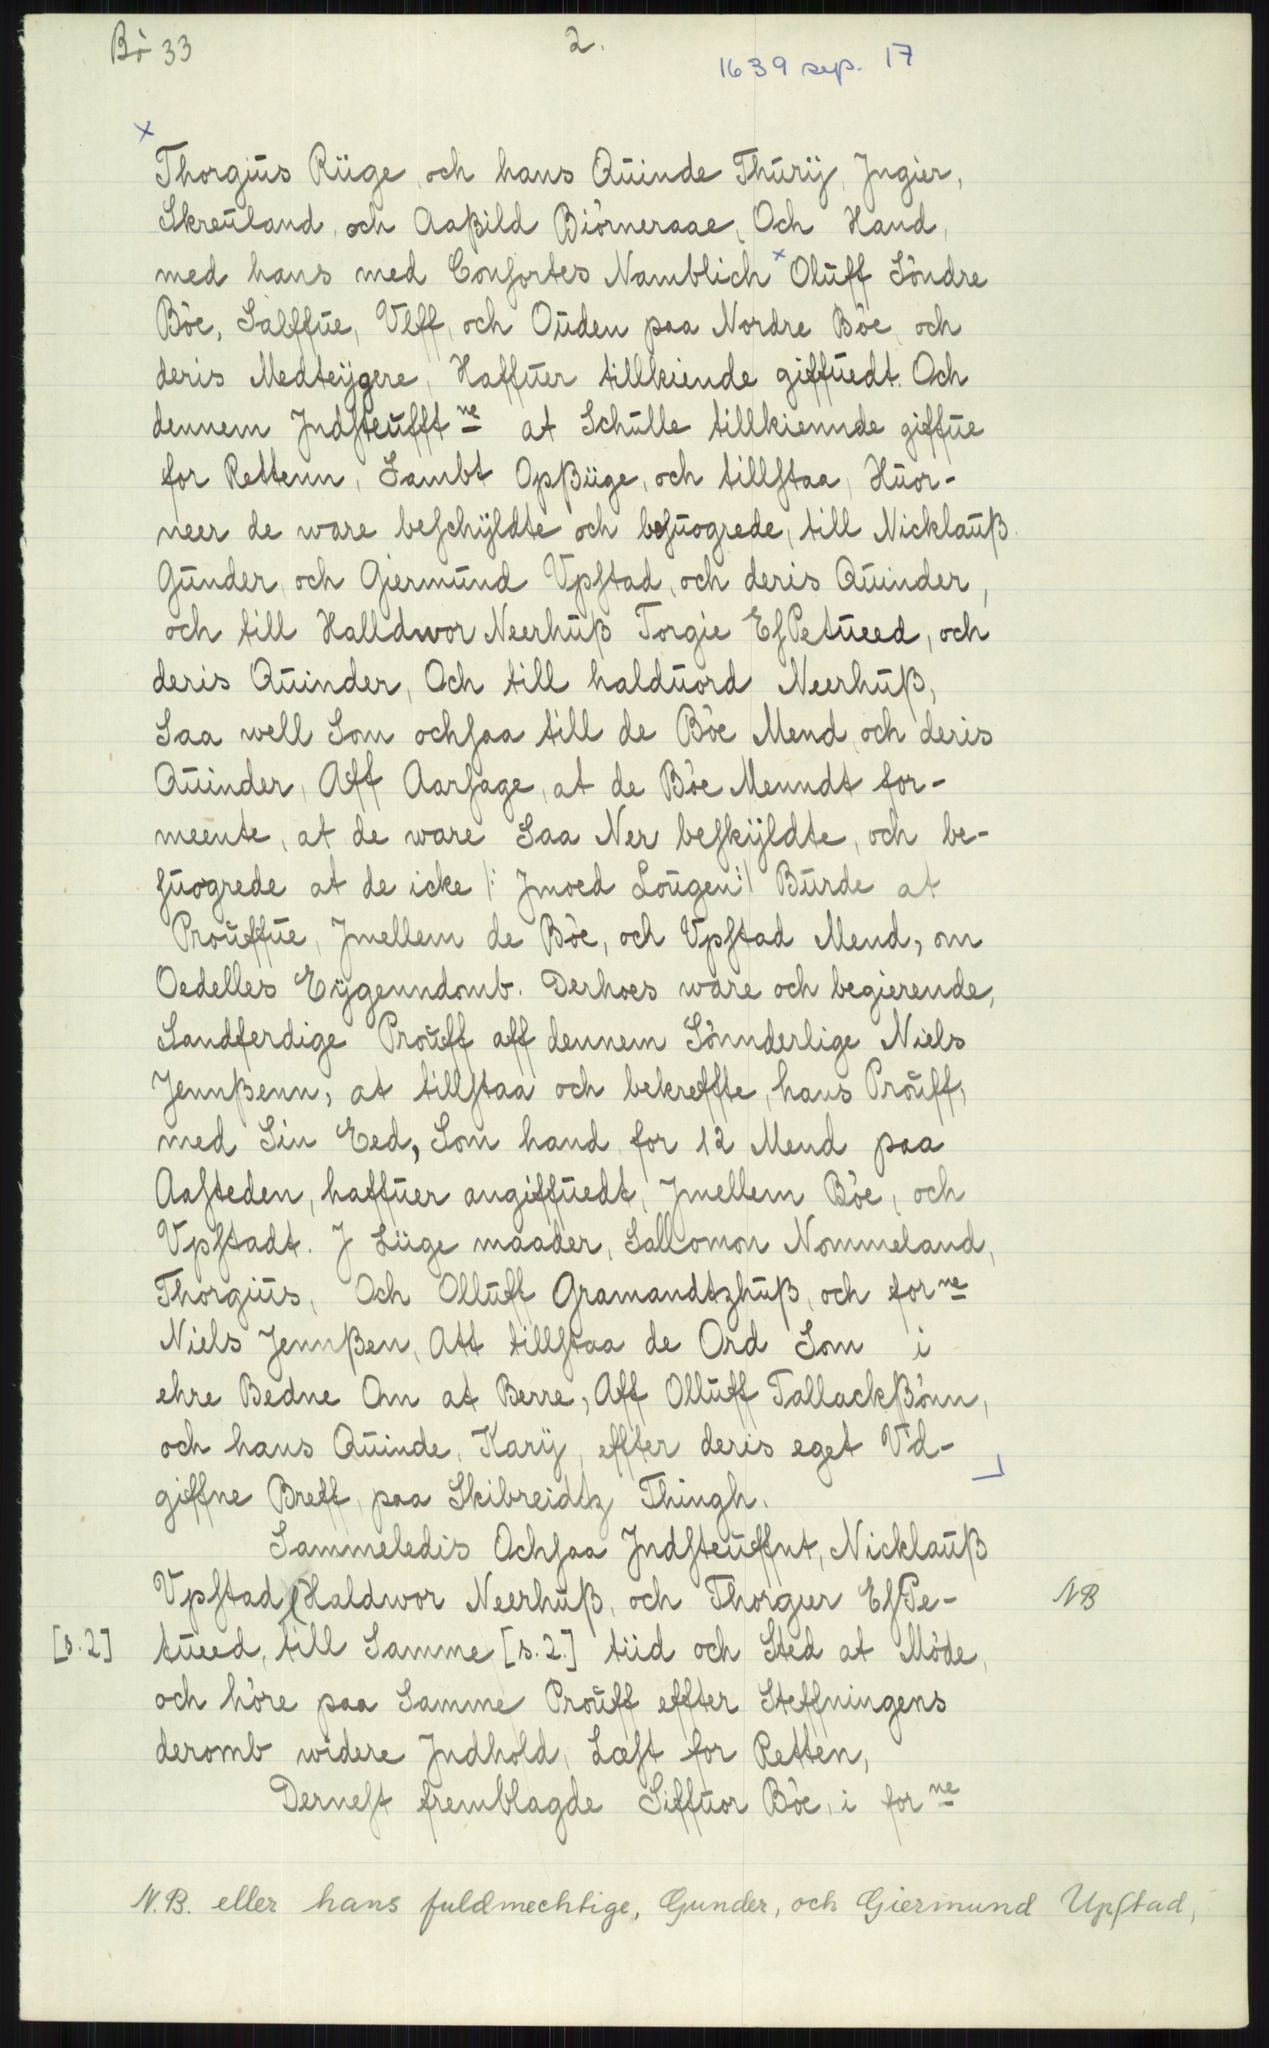 Bö 33
2.
1639 sep. 17
x
Thorgius Rüge, och hans Quinde Thurij, Jngier,
Skreuland, och Aaßild Biörneraae, Och Hand,
med hans med Consortes Namblich x Oluff Söndre
Böe, Salffue, Vlff, och Ouden paa Nordre Böe, och
deris Medteijgere, Haffuer tillkiende giffuedt. Och
dennem Jndsteufft ne at Schulle tillkiennde giffue
for Rettenn, Sambt Opßige, och tillstaa, Huor-
neer de ware beschijldte och besuogrede, till Nicklauß
Gunder, och Giermund Vpstad, och deris Quinder,
och till Halldwor Neerhuß Torgie EsPetueed, och
deris Quinder, Och till halduord Neerhuß,
Saa well Som ochsaa till de Böe Mend, och deris
Quinder, Aff Aarsage, at de Böe Menndt for-
meente, at de ware Saa Ner beskijldte, och be-
suogrede at de icke /: Jmoed Lougen :/ Burde at
Prouffue, Jmellem de Böe, och Vpstad Mend, om
Oedelles Eijgenndomb. Derhoes ware och begierende,
Sandferdige Prouff aff dennem Sönnderlige Niels
Jennßenn, at tillstaa och bekreffte, hans Prouff,
med Sin Eed, Som hand for 12 Mend paa
Aasteden, haffuer angiffuedt, Jmellem Böe, och
Vpstadt. J Lüge maader, Sallomon Nommeland,
Thorgius, Och Olluff Gramandtzhuß, och for ne
Niels Jennßen, Att tillstaa de Ord Som i
ehre Bedne Om at Berre, Aff Olluff Tallackßönn,
och hans Quinde, Karij, effter deris eget Vd-
giffne Breff, paa Skibreidtz Thingh.
Sammeledis Ochsaa Jndsteuffnt, Nicklauß
Vpstad, Haldwor Neerhuß, och Thorgier EsPe-
NB
[s. 2] tueed, till Samme [s. 2.] tiid och Sted at Möde,
och höre paa Samme Prouff effter Steffningens
deromb widere Jndhold, Læst for Retten,
Dernest fremblagde Siffuor Böe, i for ne
N.B. eller hans fuldmechtige, Gunder, och Giermund Upstad,